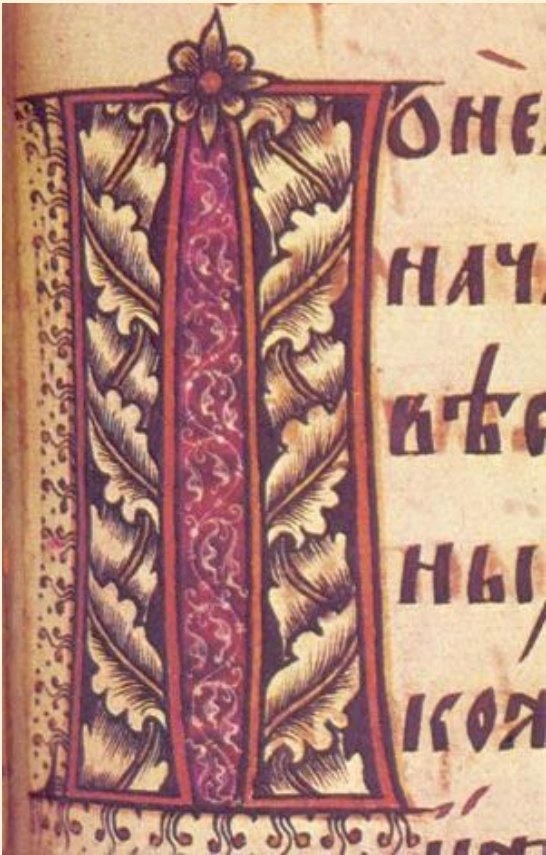 Поне
нач
вѣс
ны
ко